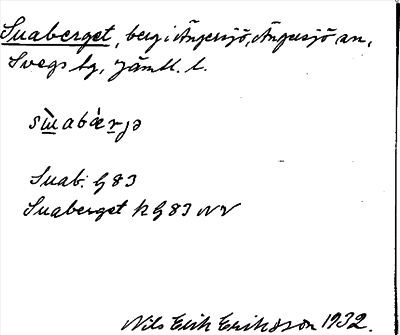 Suaberget, berg i Ängersjö, Ängersjö an.
Svegs tg, Jämtl. l.
Suab. G 83
Suaberget k G 83 NV
Nils Erik Eriksson 1932.